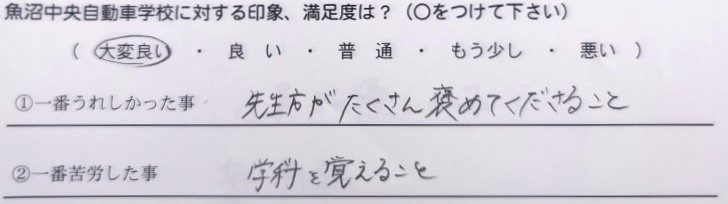 魚沼中央自動車学校に対する印象、満足度は？（○をつけて下さい）
（ 大変良い ・ 良い ・ 普通 ・ もう少し ・ 悪い ）
①一番うれしかった事 先生方がたくさん褒めてくださること
②一番苦労した事 学科を覚えること